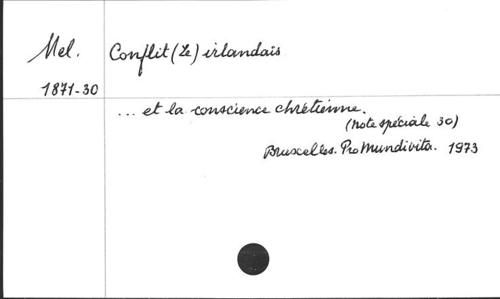 Mel. Conflit (Le) irlandais
1871-30
... et la conscience chrétienne.
(Note spéciale 30)
Bruxelles. Pro Mundi vita. 1973